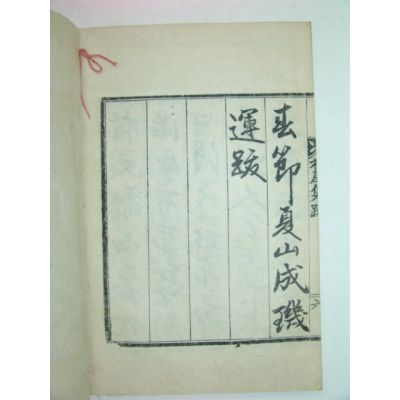 春節夏山成璣
運跋